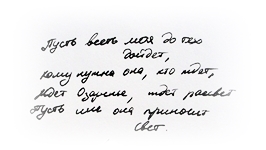 Пусть весть моя до тех
дойдет,
кому нужна она, кто ждет,
ждет Озаренье, ждет рассвет
Пусть им она приносит
свет.